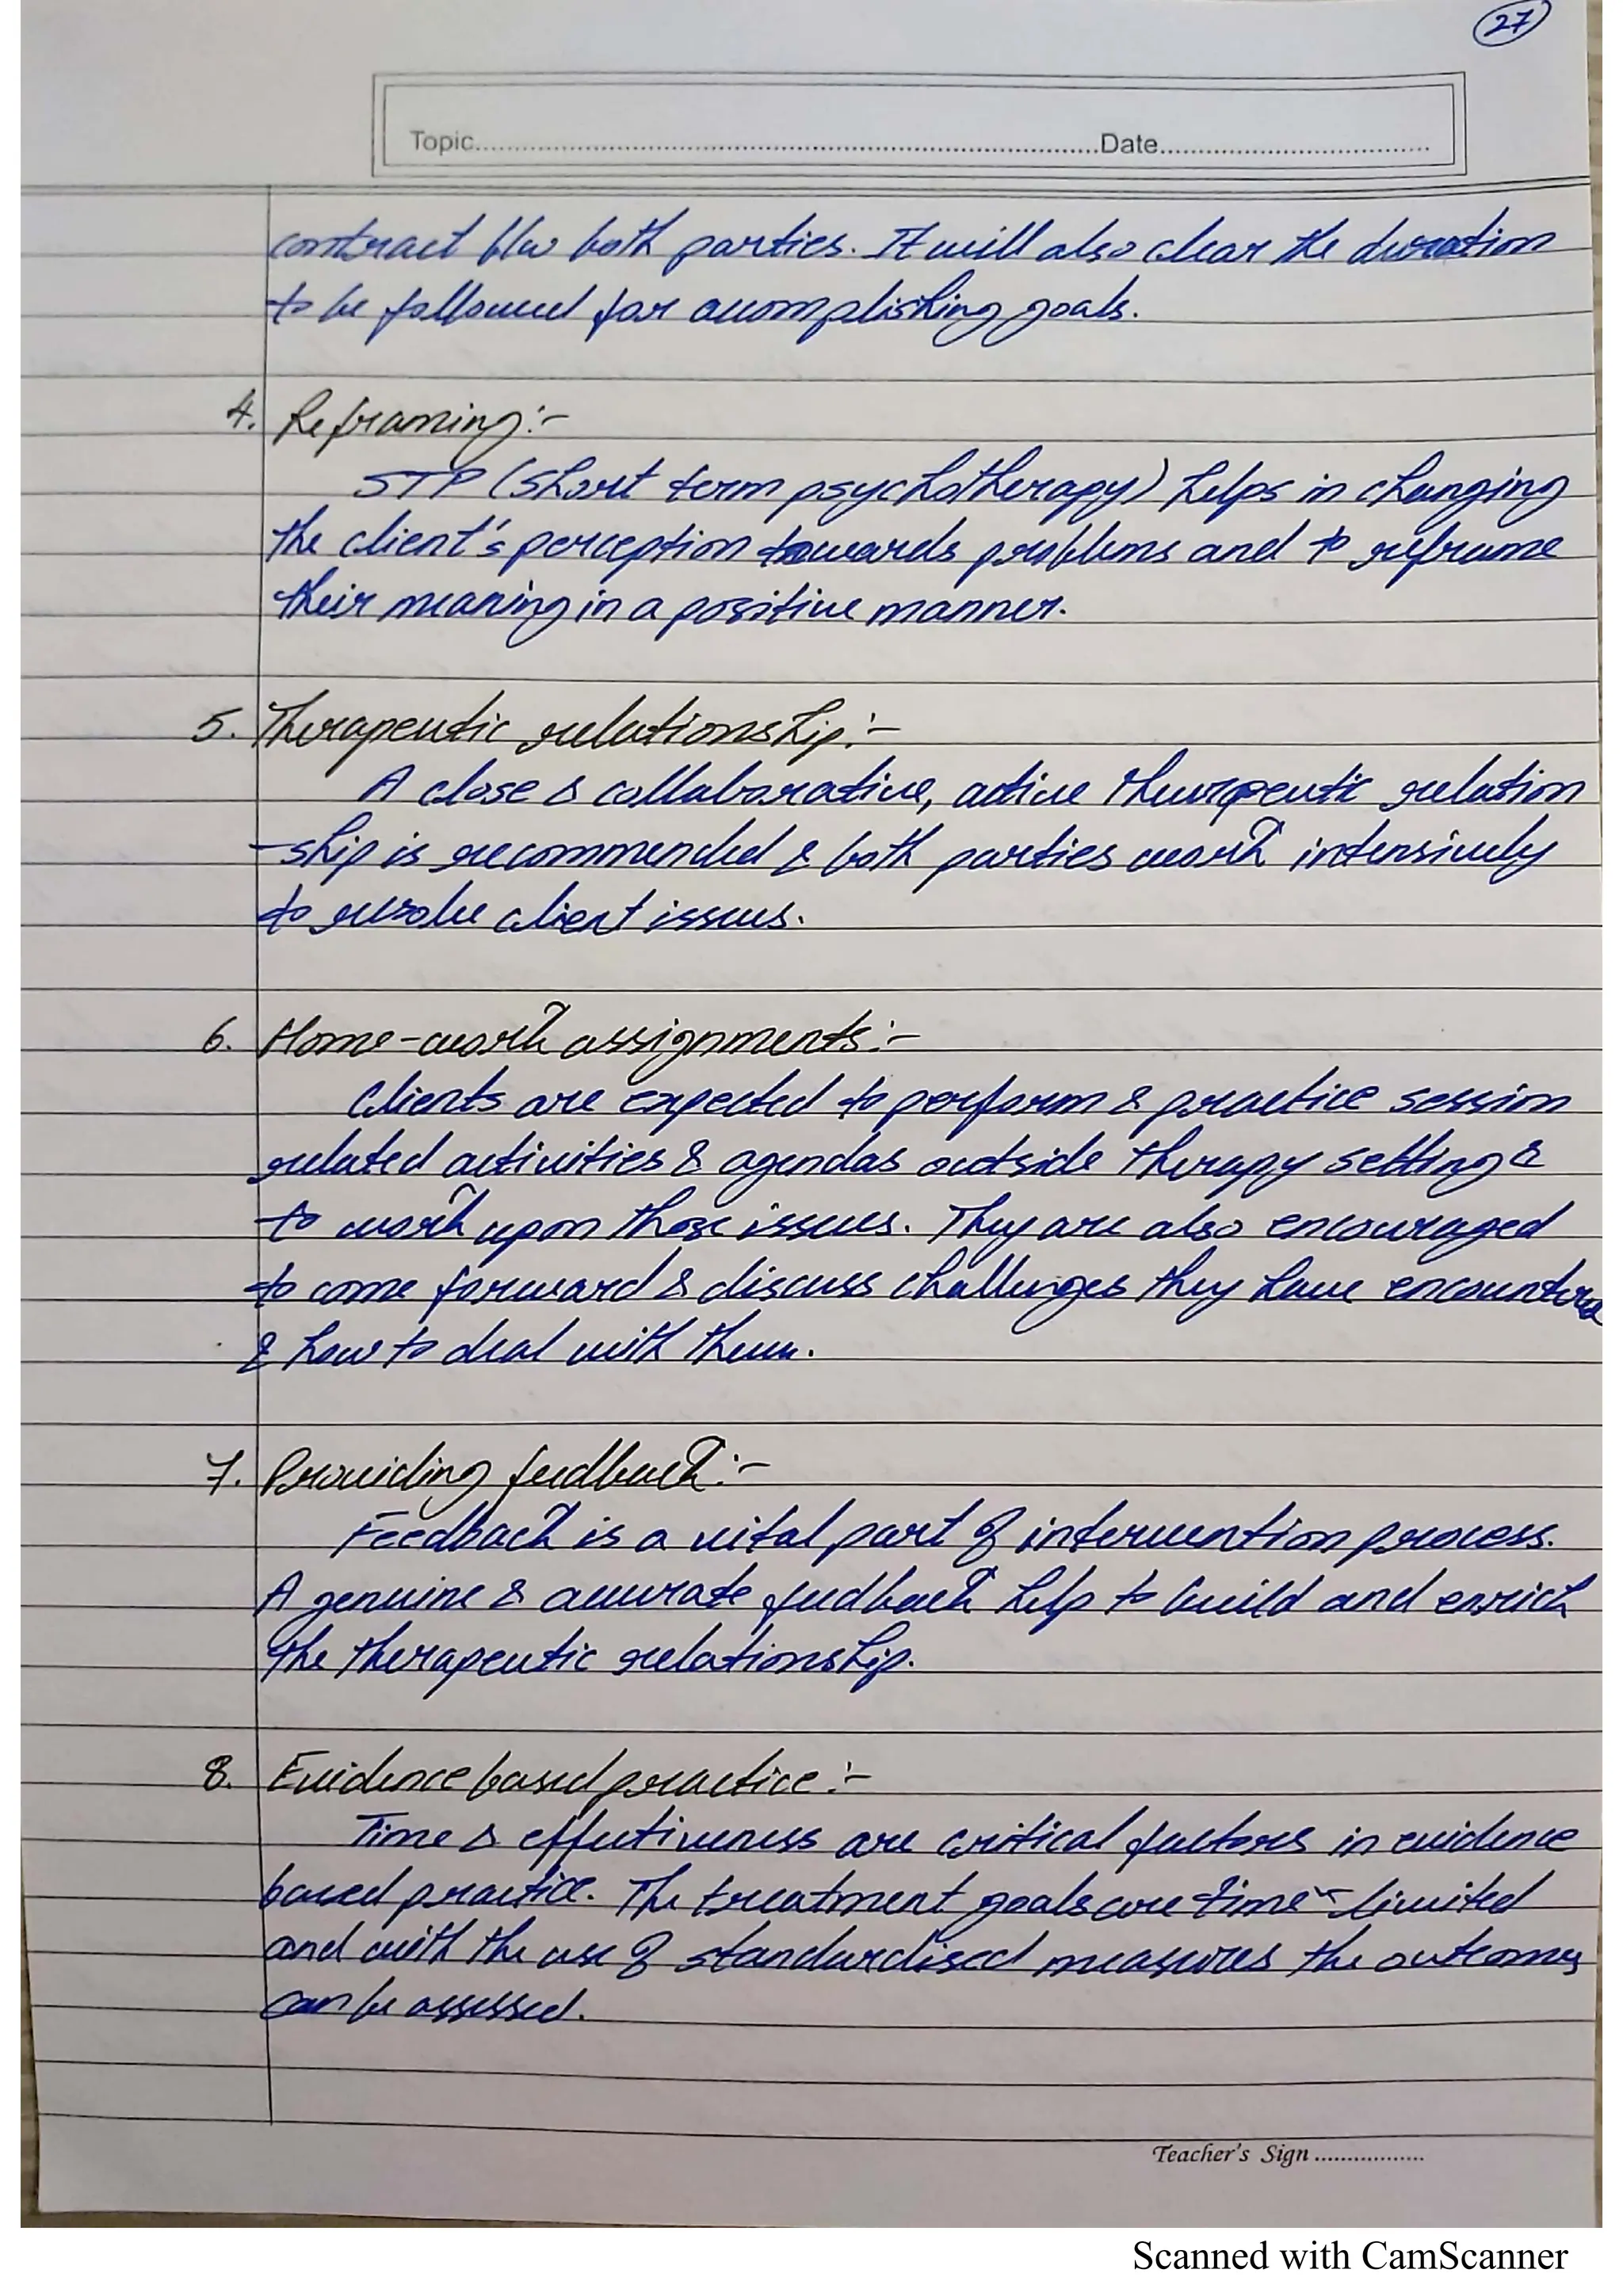 27
Topic..............................Date..............................
contract b/w both parties. It will also clear the duration
to be followed for accomplishing goals.
4. Reframing:-
STP (short term psychotherapy) helps in changing
the client's perception towards problems and to reframe
their meaning in a positive manner.
5. Therapeutic relationship:-
A close & collaborative, active therapeutic relation
-ship is recommended & both parties work intensively
to resolve client issues.
6. Home-work assignments:-
Clients are expected to perform & practice session
related activities & agendas outside therapy setting &
to work upon those issues. They are also encouraged
to come forward & discuss challenges they have encountered
& how to deal with them.
7. Providing feedback:-
Feedback is a vital part of intervention process.
A genuine & accurate feedback help to build and enrich
the therapeutic relationship.
8. Evidence based practice:-
Time & effectiveness are critical factors in evidence
based practice. The treatment goals are time-limited
and with the use of standardised measures the outcomes
can be assessed.
Teacher's Sign ..................
Scanned with CamScanner